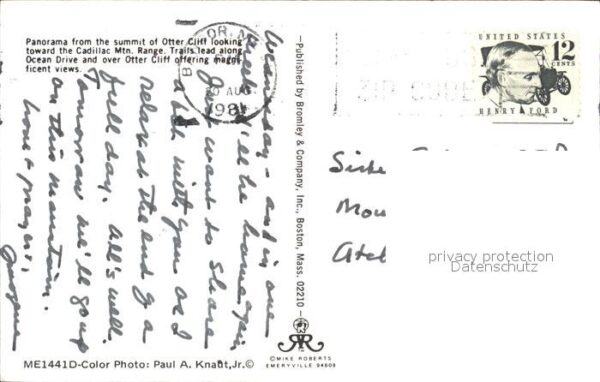 Panorama from the summit of Otter Cliff looking
toward the Cadillac Mtn. Range. Trails lead along
Ocean Drive and over Otter Cliff offering magnif-
icent views.
Ocean day - as I in one
week I'll be home again,
Just want to share
a bit with you as I
relax at the end of a
full day. All's well.
Tomorrow we'll go up
on this mountain.
Love & prayers,
—Published by Bromley & Company, Inc., Boston, Mass. 02210—
BANGOR, M
20 AUG
1981
ZIP CODE
UNITED STATES
12
CENTS
HENRY FORD
Siste
Mou
Atel
privacy protection
Datenschutz
ME1441D-Color Photo: Paul A. Knaut,Jr.©
©MIKE ROBERTS
EMERYVILLE 94608